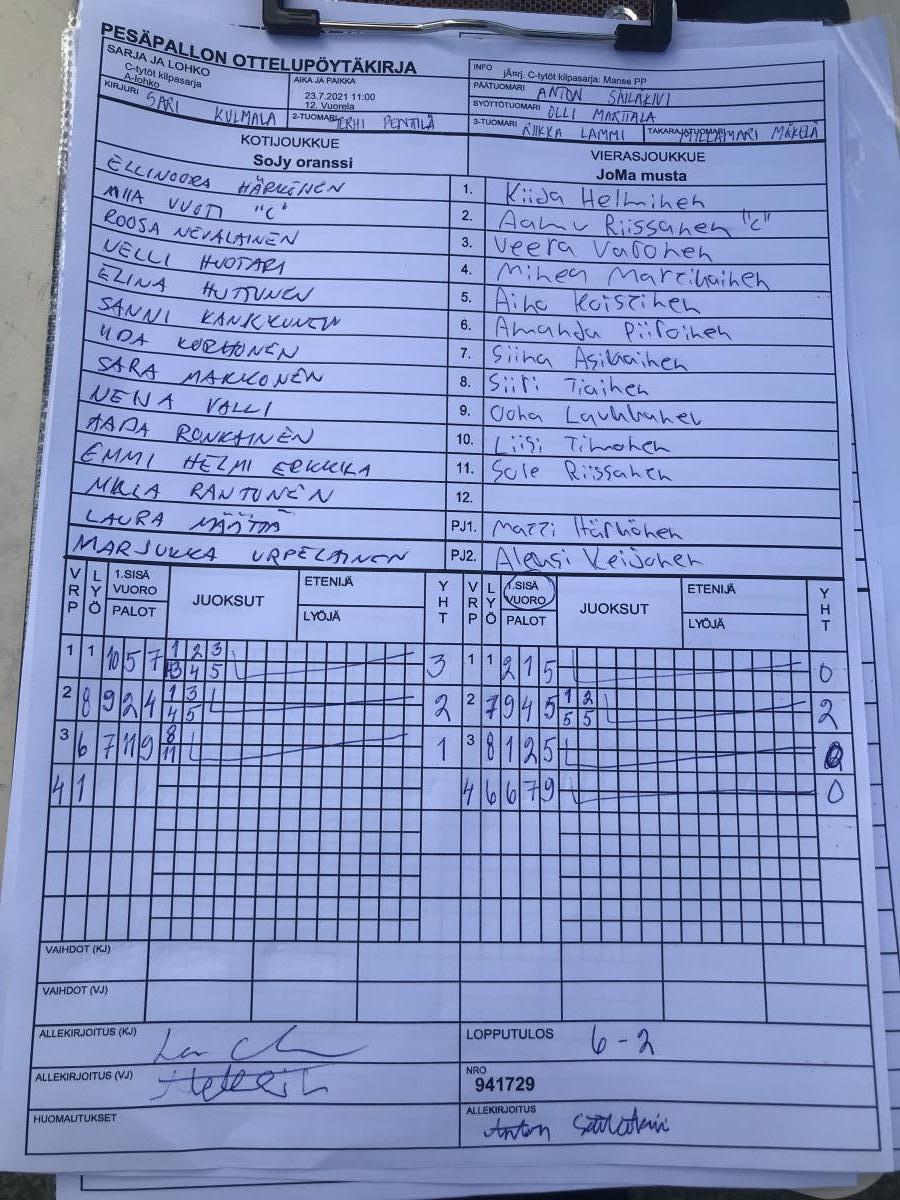 PESÄPALLON OTTELUPÖYTÄKIRJA
SARJA JA LOHKO
C-tytöt kilpasarja
A-lohko
AIKA JA PAIKKA
23.7.2021 11:00
12. Vuorela
INFO
jÄnrj. C-tytöt kilpasarja: Manse PP
PÄÄTUOMARI ANTON SÄILÄKIVI
KIRJURI SARI KULMALA
2-TUOMARI TERHI PENTILÄ
SYÖTTÖTUOMARI OLLI MARTTALA
3-TUOMARI RIIKKA LAMMI
TAKARAJATUOMARI MILLAMARI MÄKELÄ
KOTIJOUKKUE
SoJy oranssi
VIERASJOUKKUE
JoMa musta
ELLINOORA HÄRKÖNEN 1. Kiida Helminen
MIIA VUOTI "C" 2. Aamu Riissanen "C"
ROOSA NEVALAINEN 3. Veera Varonen
VELLI HUOTARI 4. Minea Martikainen
ELINA HUTTUNEN 5. Aino Koistinen
SANNI KANKKUNEN 6. Amanda Piiroinen
IIDA KORHONEN 7. Siina Asikainen
SARA MAKKONEN 8. Siiri Tiainen
NEIVA VALLI 9. Oona Laukkanen
AADA RONKAINEN 10. Liisi Timonen
EMMI HELMI ERKKILA 11. Sole Riissanen
MILLA RANTONEN 12.
LAURA MÄÄTTÄ PJ1. Matti Härkönen
MARJUKKA URPELAINEN PJ2. Aleksi Keijonen
VRP LYÖ 1.SISÄ VUORO PALOT JUOKSUT ETENIJÄ LYÖJÄ YHT VRP LYÖ 1.SISÄ VUORO PALOT JUOKSUT ETENIJÄ LYÖJÄ YHT
1 1 10 5 7 1 2 3 3 1 1 2 1 5 0
3 4 5
2 8 9 2 4 1 3 2 2 7 9 4 5 1 2 2
4 5 5 5
3 6 7 11 9 8 1 3 8 1 2 5 0
11
4 1 4 6 6 7 9 0
VAIHDOT (KJ)
VAIHDOT (VJ)
ALLEKIRJOITUS (KJ)
LOPPUTULOS 6-2
ALLEKIRJOITUS (VJ)
NRO
941729
HUOMAUTUKSET
ALLEKIRJOITUS
Anton Säiläkivi